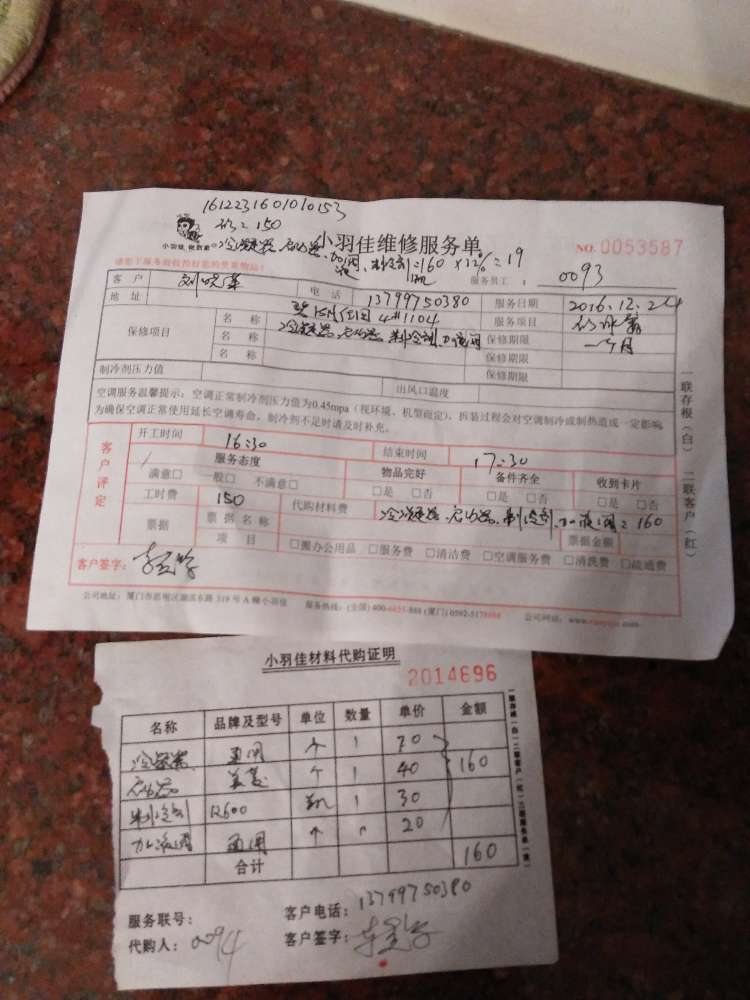 1612231601010153
=150
小羽佳 做到家
小羽佳维修服务单
NO.0053587
=160 ×12%=19
服务员工: 0093
客 户 电 话 13799750380 服务日期 2016.12.24
地 址 4#1104 服务项目
保修项目 名 称 冷凝器、启动器、制冷剂、加液阀 保修期限 一个月
名 称 保修期限
名 称 保修期限
制冷剂压力值 出风口温度
空调服务温馨提示:空调正常制冷剂压力值为0.45mpa(视环境、机型而定),拆装过程会对空调制冷或制热造成一定影响
为确保空调正常使用延长空调寿命,制冷剂不足时请及时补充。
客户评定
开工时间 16:30 结束时间 17:30
服务态度 物品完好 备件齐全 收到卡片
满意□ 一般□ 不满意□ □是 □否 □是 □否 □是 □否
工时费 150 代购材料费 冷凝器、启动器、制冷剂、加液阀=160
票据 票据名称 票据金额
项 目 □搬办公用品 □服务费 □清洁费 □空调服务费 □清洗费 □疏通费
客户签字:
一联存根(白) 二联客户(红)
小羽佳材料代购证明
2014696
名称 品牌及型号 单位 数量 单价 金额
冷凝器 通用 个 1 70
启动器 美菱 个 1 40 160
制冷剂 R600 瓶 1 30
加液阀 通用 个 20
合计 160
服务联号: 客户电话: 13799750380
代购人: 0094 客户签字: